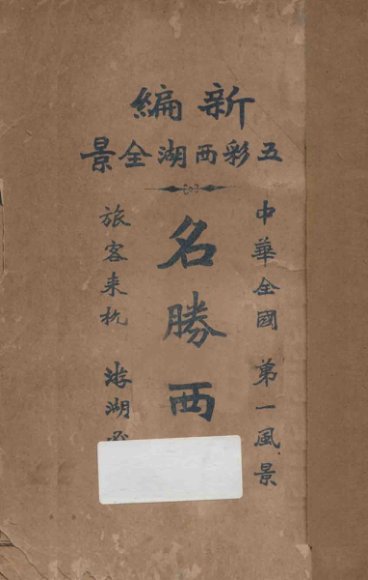 新編
五彩西湖全景
中華全國 第一風景
名勝西
旅客来杭 游湖必